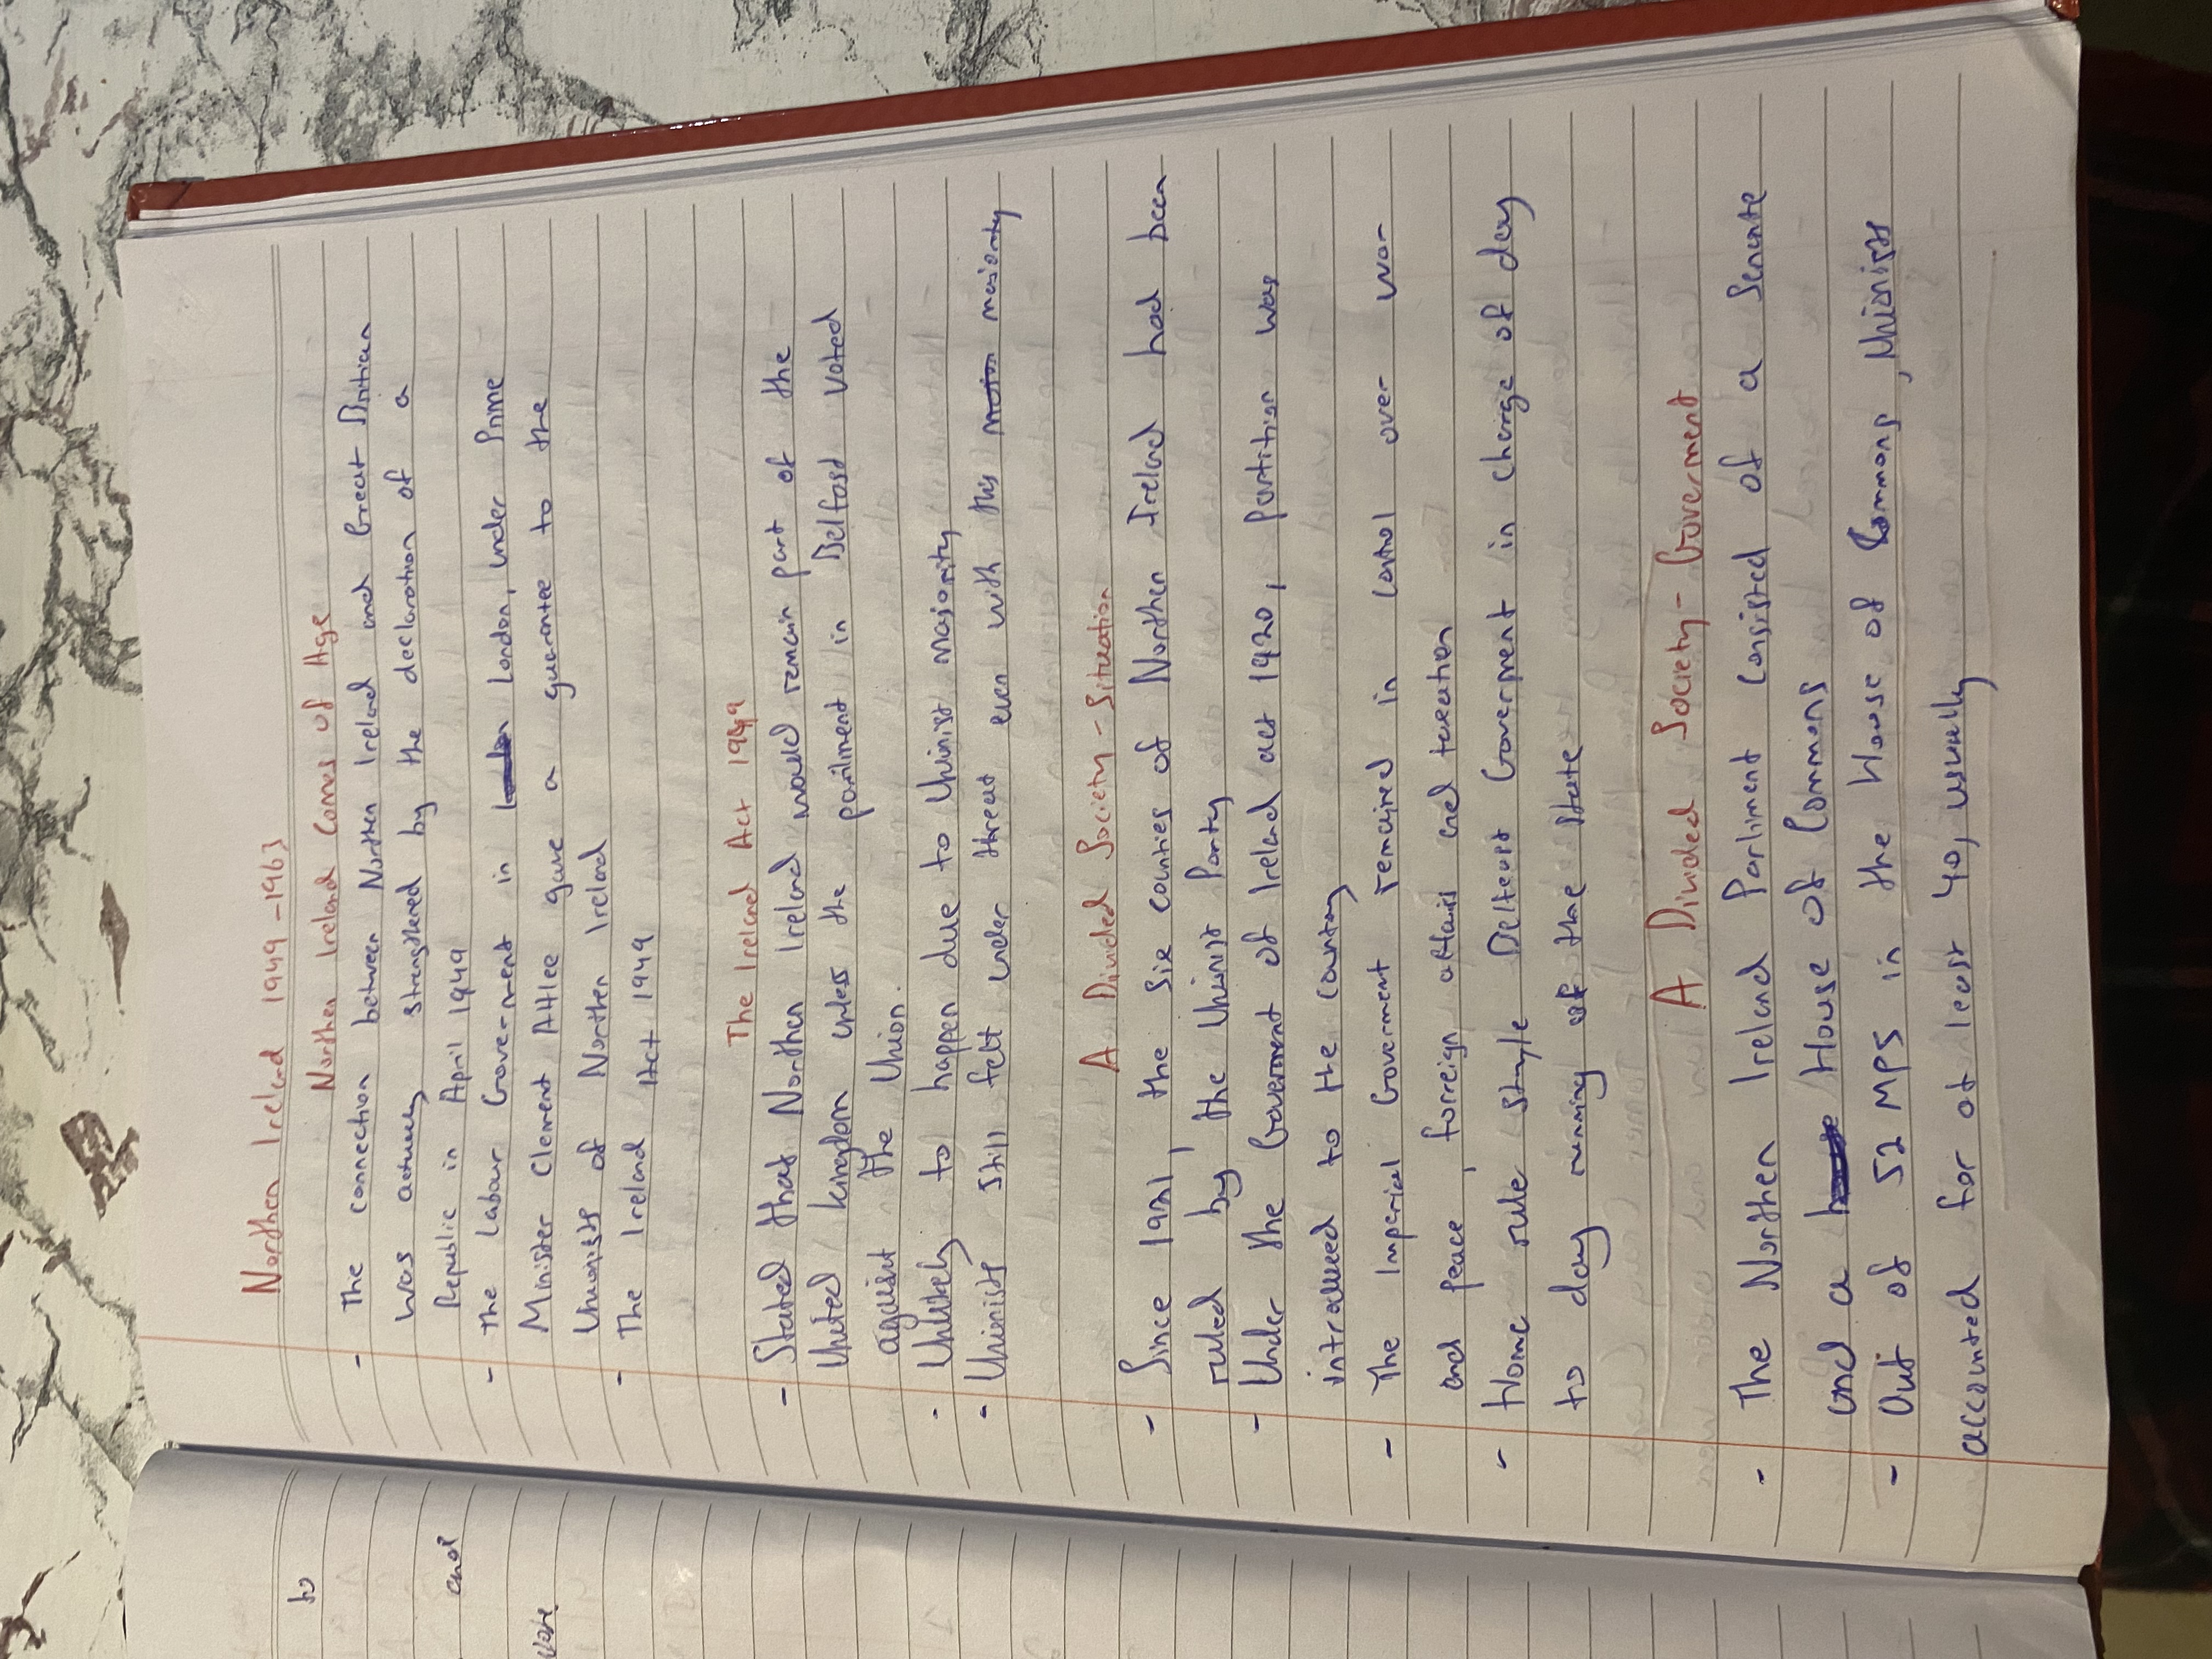 to
and
Northen Ireland 1949 - 1963
Northen Ireland Comes of Age
- The connection between Northen Ireland and Great Britian
was actually strengthened by the declaration of a
Republic in April 1949
- The Labour Goverment in London, under Prime
Minister Clement Attlee gave a guarantee to the
Unionists of Northen Ireland
- The Ireland Act 1949
The Ireland Act 1949
- Stated that Northen Ireland would remain part of the
United kingdom unless the parilment in Belfast voted
against the Union.
- Unlikely to happen due to Unionist majority
- Unionists still felt under threat even with this majority
A Divided Society - Situation
- Since 1921, the six counties of Northen Ireland had been
ruled by the Unionist Party
- Under the Goverment of Ireland act 1920, Partition was
introduced to the country
- The Imperial Goverment remained in control over war
and peace, forreign affairs and taxation
- Home rule style Belfast Goverment in charge of day
to day running of the state
A Divided Society - Goverment
- The Northen Ireland Parliment consisted of a Senate
and a House of Commons
- Out of 52 MPs in the House of Commons, Unionists
accounted for at least 40, usually